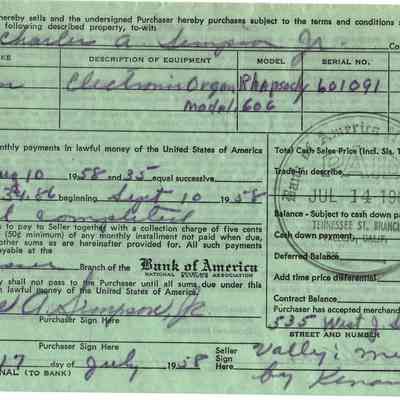 hereby sells and the undersigned Purchaser hereby purchases subject to the terms and conditions
following described property, to-wit
Charles A. Simpson Jr.
KE DESCRIPTION OF EQUIPMENT MODEL SERIAL NO.
Electronic Organ Rhapsody 601091
Model 60G
onthly payments in lawful money of the United States of America
Total Cash Sales Price (Incl. Sls. T
Aug 10 1958 and 35 equal successive
Trade-in: describe
34.86 beginning Sept 10 1958
Bank of America
JUL 14 19
completed
Balance - Subject to cash down pa
TENNESSEE ST. BRANCH
CALIF.
s to pay to Seller together with a collection charge of five cents
(50¢ minimum) of any monthly installment not paid when due,
other sums as are hereinafter provided for. All such payments
payable at the
Cash down payment,
Deferred Balance
Branch of the Bank of America
NATIONAL SAVINGS ASSOCIATION
Add time price differential
y shall not pass to the Purchaser until all sums due under this
n lawful money of the United States of America.
Contract Balance
Purchaser has accepted merchand
A. Simpson Jr
Purchaser Sign Here
535 West
STREET AND NUMBER
Purchaser Sign Here
17 day of July 1958
Seller
Sign
Here
NAL (TO BANK)
by